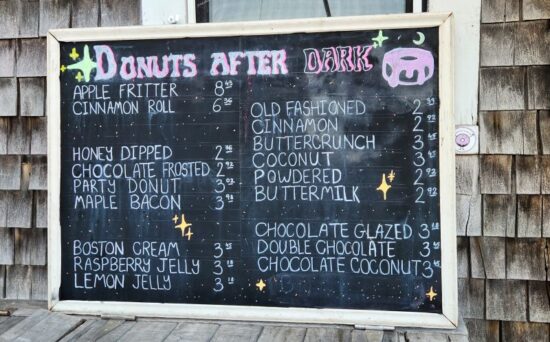 DONUTS AFTER DARK
APPLE FRITTER 8
CINNAMON ROLL 6
HONEY DIPPED 2
CHOCOLATE FROSTED 2
PARTY DONUT 3
MAPLE BACON 3
BOSTON CREAM 3
RASPBERRY JELLY 3
LEMON JELLY 3
OLD FASHIONED 2
CINNAMON 2
BUTTERCRUNCH 3
COCONUT 3
POWDERED 2
BUTTERMILK 2
CHOCOLATE GLAZED 3
DOUBLE CHOCOLATE 3
CHOCOLATE COCONUT 3